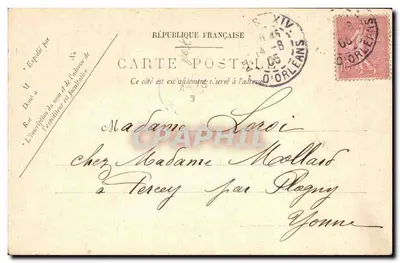 RÉPUBLIQUE FRANÇAISE
CARTE POSTALE
Ce côté est exclusivement réservé à l'adresse
Expédié par
M
Dem t à
Rue
N°
L'inscription du nom et de l'adresse de
l'expéditeur est facultative
XIV
8
05
D'ORLEANS
3
CPAPHIL
Madame Loroi
chez Madame Mollard
à Percey par Flogny
Yonne